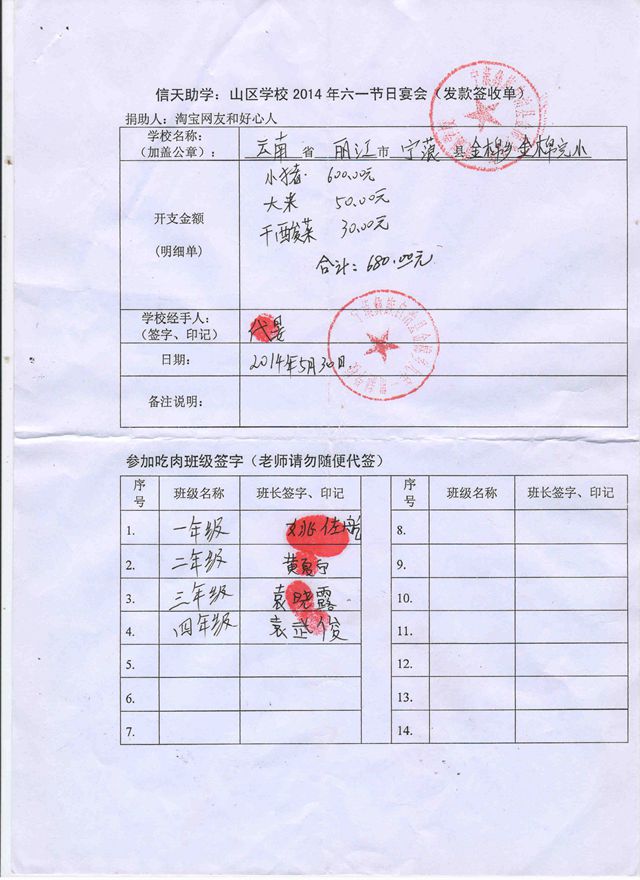 信天助学：山区学校 2014 年六一节日宴会（发款签收单）
捐助人：淘宝网友和好心人
学校名称：
（加盖公章）：
云南 省 丽江 市 宁蒗 县 金棉乡 金棉完小
小猪 600.00元
大米 50.00元
干酸菜 30.00元
合计：680.00元
开支金额
(明细单)
学校经手人：
（签字、印记）
日期： 2014年5月30日
备注说明：
参加吃肉班级签字（老师请勿随便代签）
序号 班级名称 班长签字、印记 序号 班级名称 班长签字、印记
1. 一年级 8.
2. 二年级 9.
3. 三年级 袁晓露 10.
4. 四年级 袁武俊 11.
5. 12.
6. 13.
7. 14.